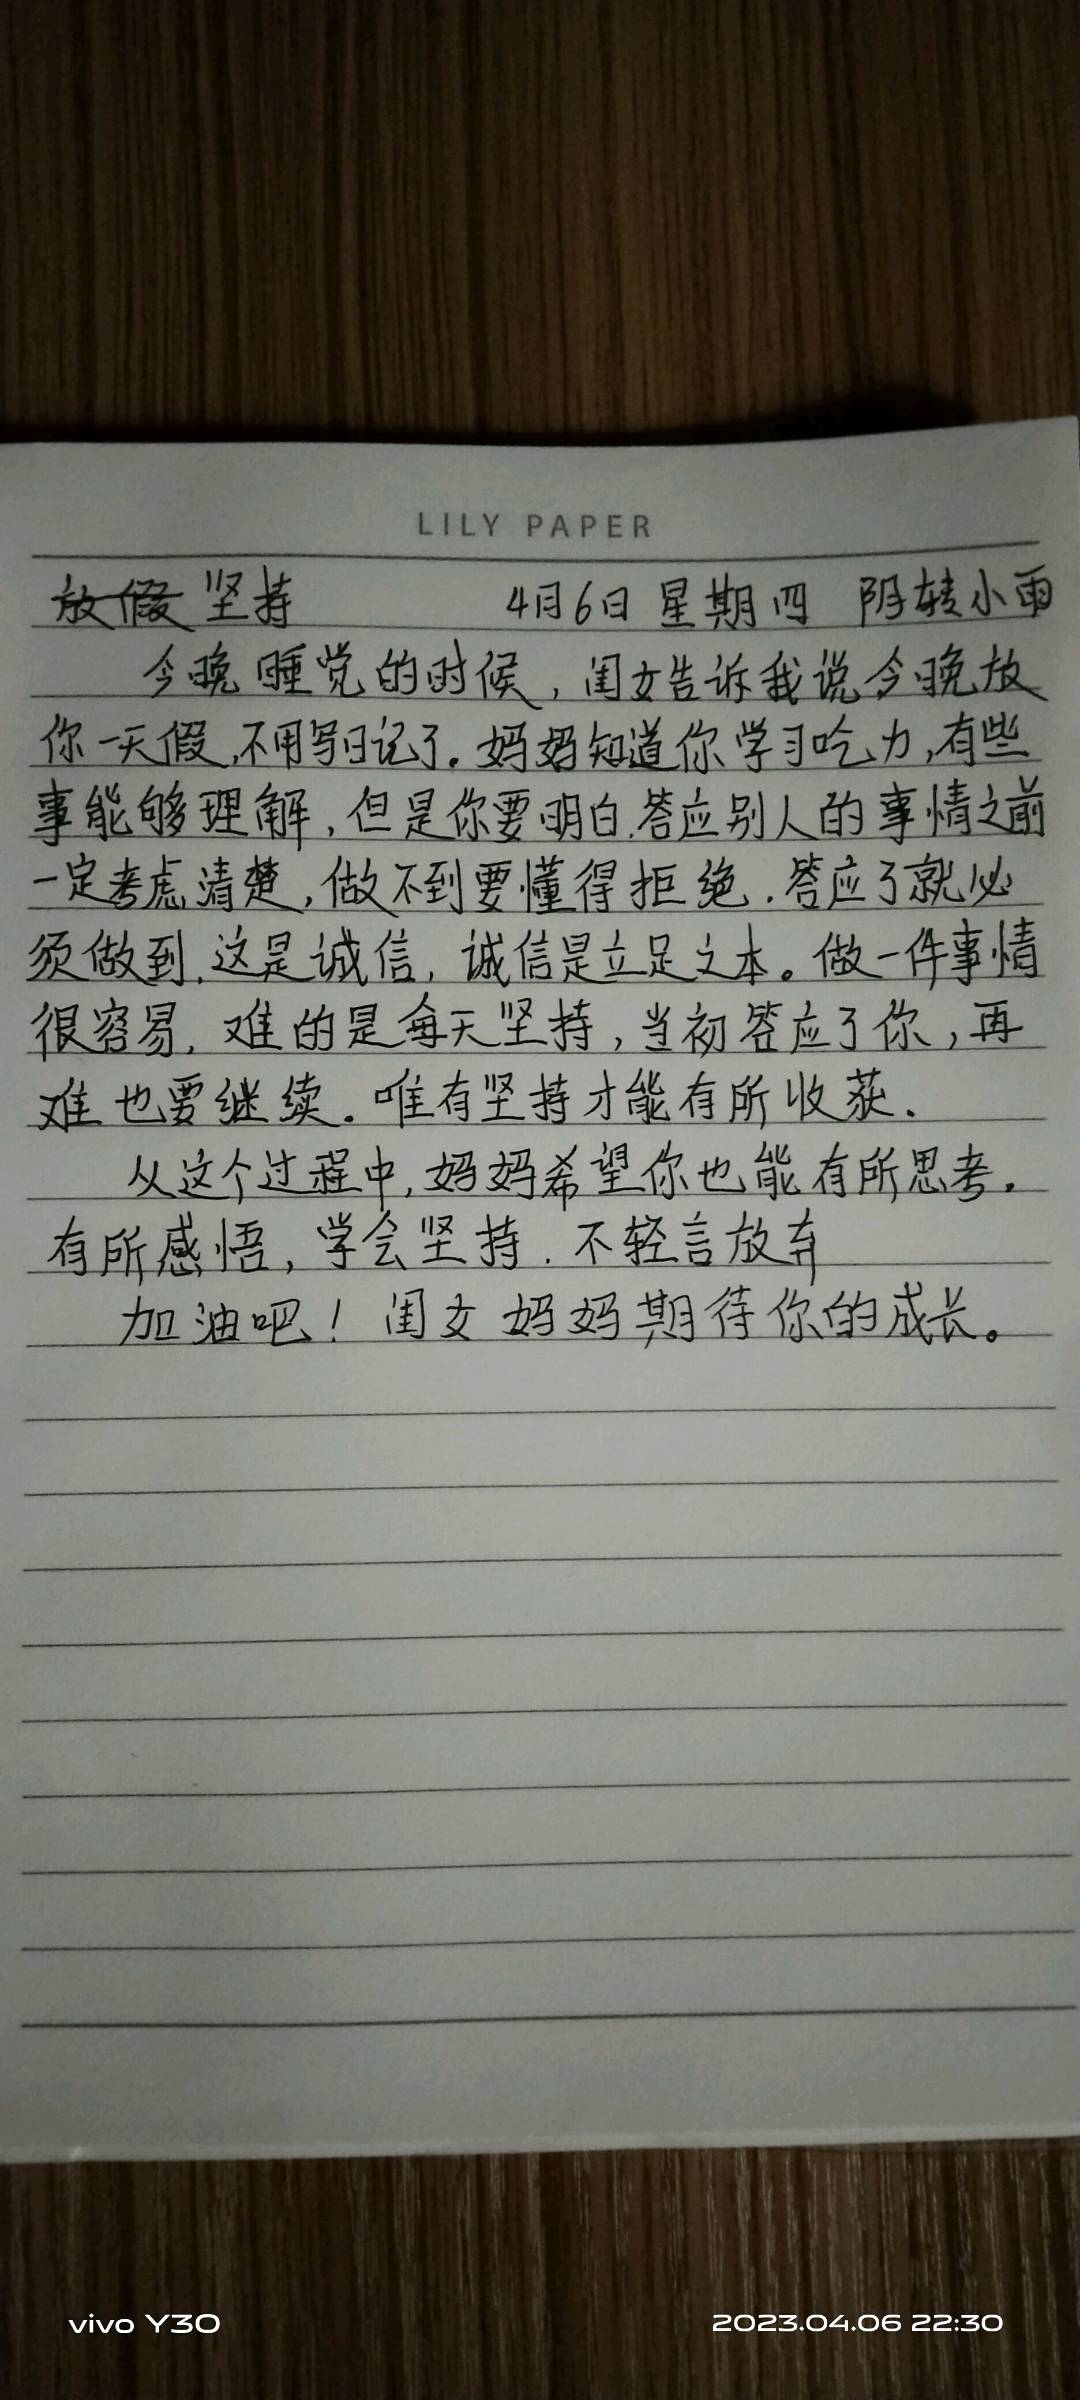 LILY PAPER
放假 坚持 4月6日 星期四 阴转小雨
今晚睡觉的时候，闺女告诉我说今晚放
你一天假,不用写日记了。妈妈知道你学习吃力,有些
事能够理解,但是你要明白.答应别人的事情之前
一定考虑清楚,做不到要懂得拒绝.答应了就必
须做到,这是诚信,诚信是立足之本。做一件事情
很容易,难的是每天坚持,当初答应了你,再
难也要继续。唯有坚持才能有所收获.
从这个过程中,妈妈希望你也能有所思考.
有所感悟,学会坚持.不轻言放弃
加油吧!闺女 妈妈期待你的成长。
vivo Y30 2023.04.06 22:30